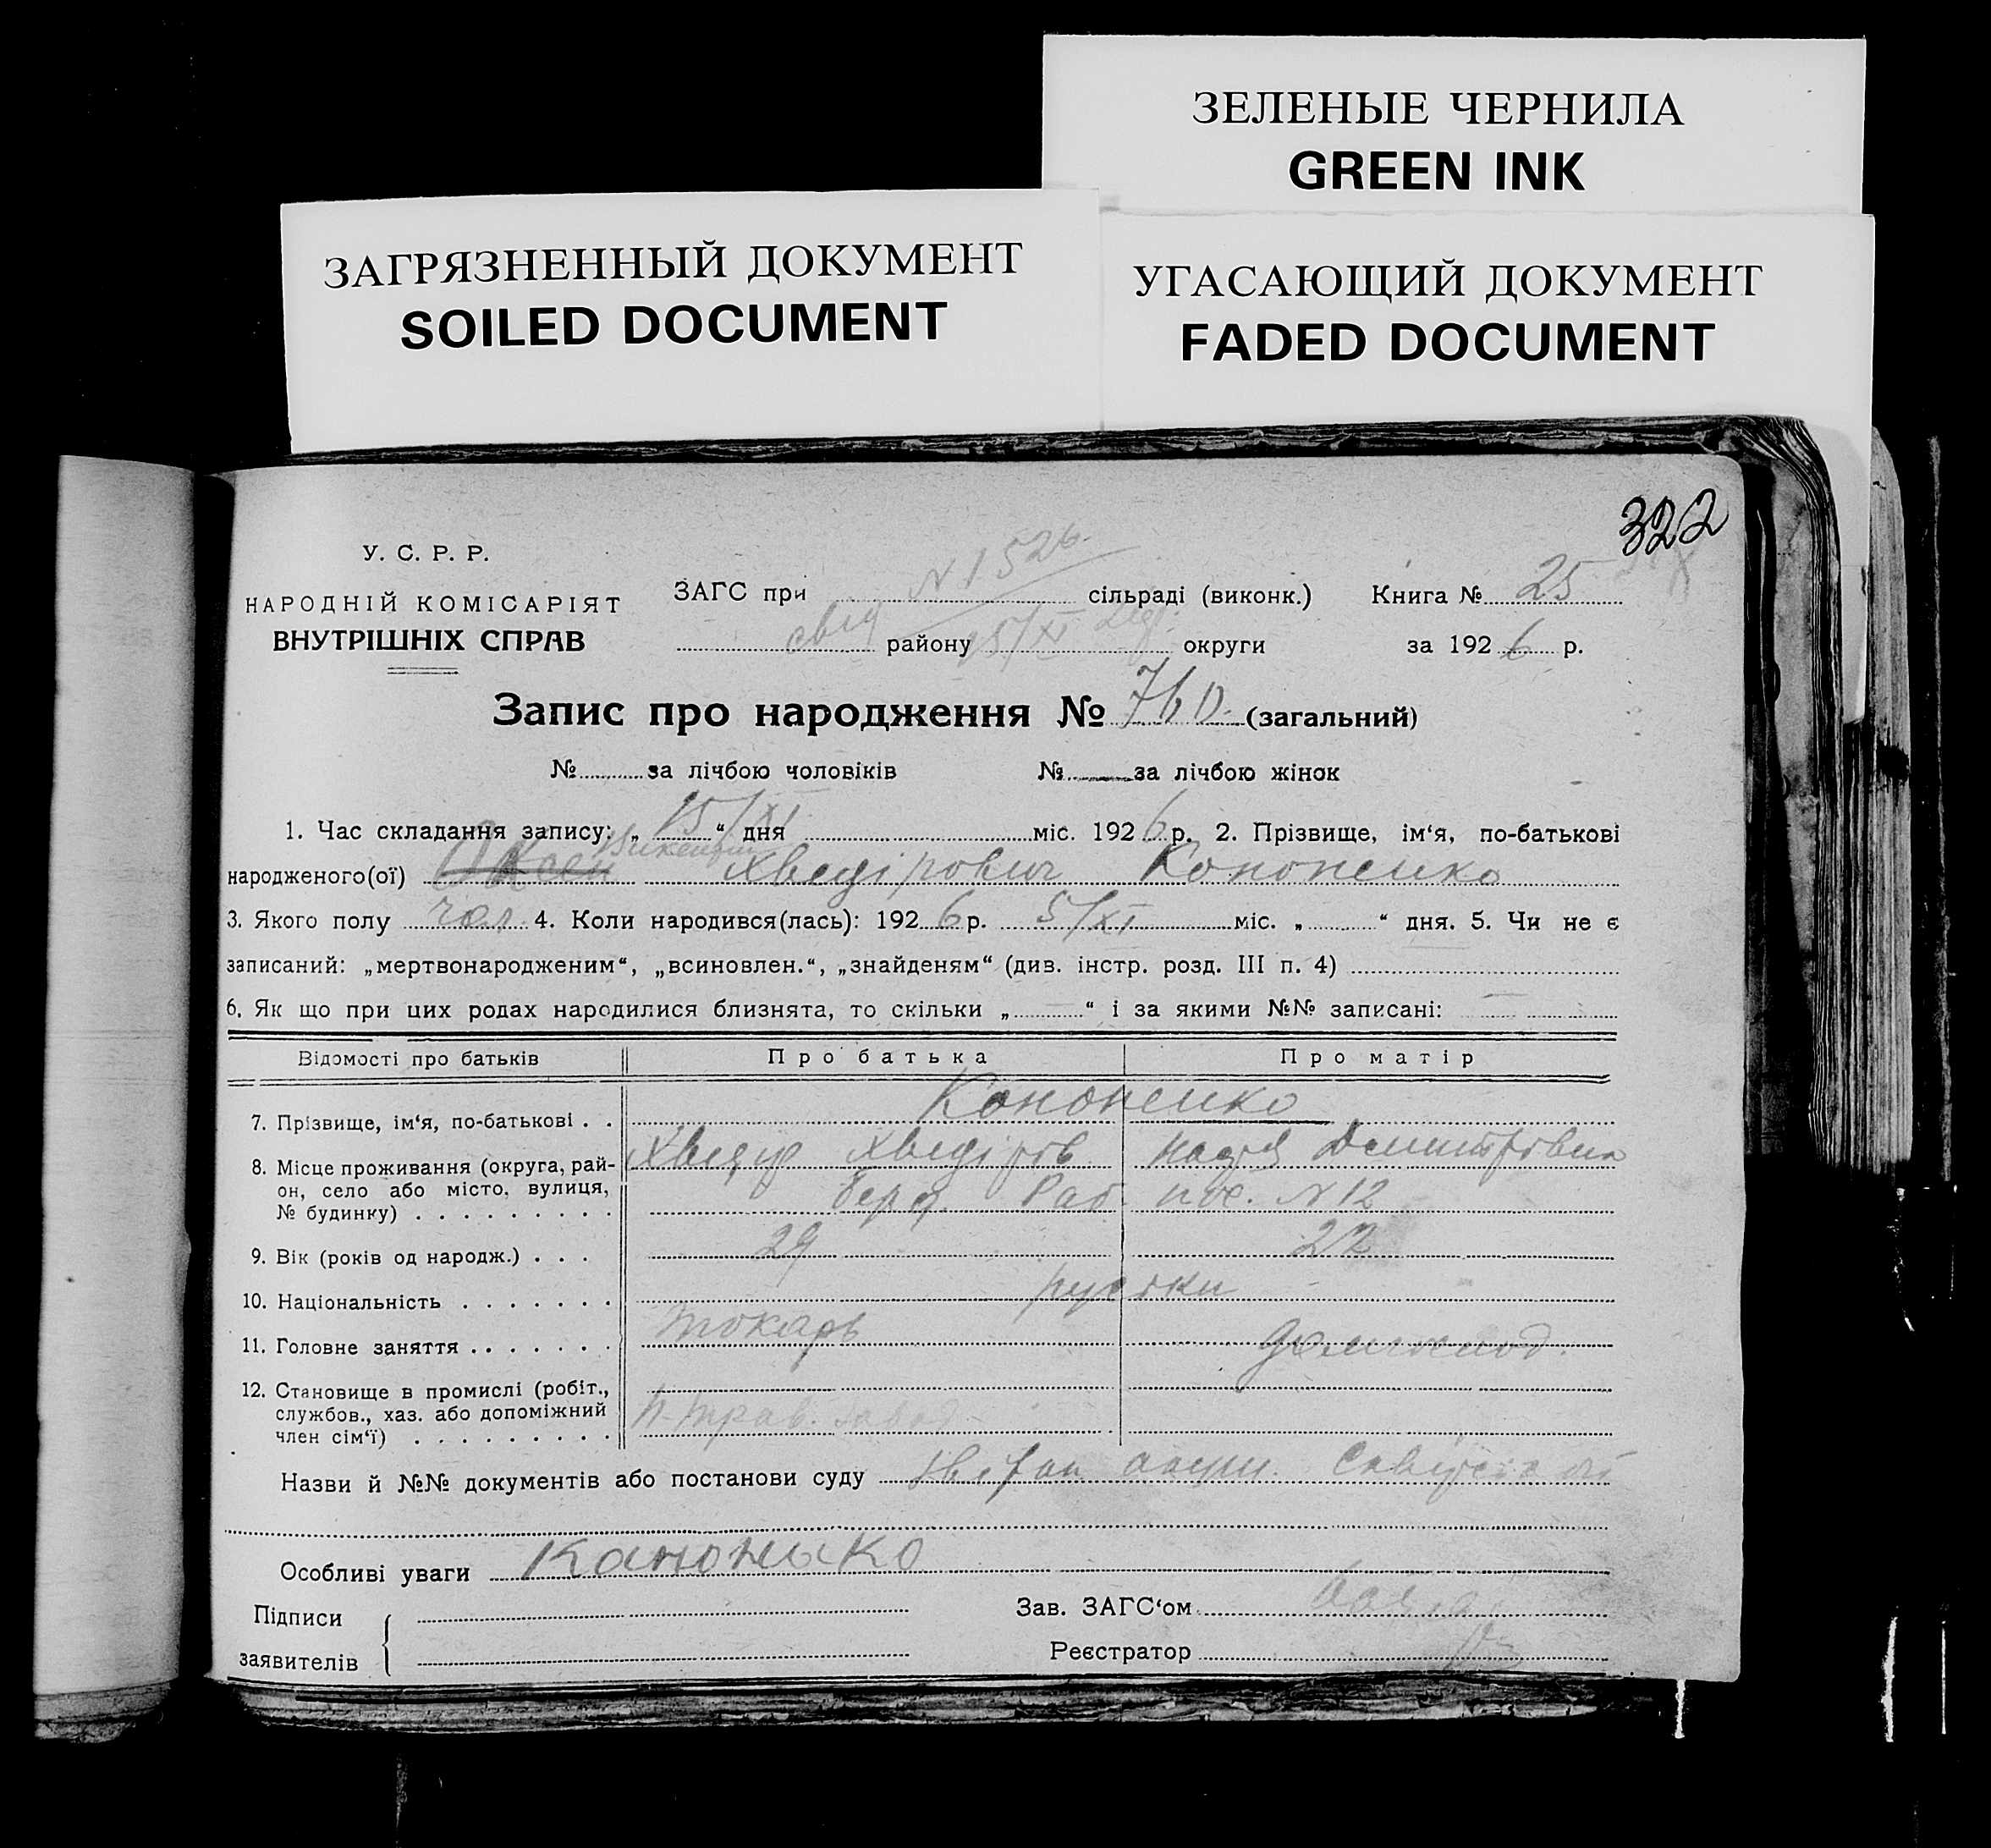 ЗЕЛЕНЫЕ ЧЕРНИЛА
GREEN INK
ЗАГРЯЗНЕННЫЙ ДОКУМЕНТ
SOILED DOCUMENT
УГАСАЮЩИЙ ДОКУМЕНТ
FADED DOCUMENT
322
У. С. Р. Р.
НАРОДНІЙ КОМІСАРІЯТ
ВНУТРІШНІХ СПРАВ
ЗАГС при N 1526 сільраді (виконк.) Книга № 25
свід району 15/XI округи за 1926 р.
Запис про народження № 760 (загальний)
№ за лічбою чоловіків № за лічбою жінок
1. Час складання запису: „ 15/XI “ дня міс. 1926 р. 2. Прізвище, ім‘я, по-батькові
народженого(ої) Хведірович Кононенко
3. Якого полу чол. 4. Коли народився(лась): 1926 р. 5/XI міс. „ “ дня. 5. Чи не є
записаний: „мертвонародженим“, „всиновлен.“, „знайденям“ (див. інстр. розд. III п. 4)
6. Як що при цих родах народилися близнята, то скільки „ “ і за якими №№ записані:
Відомості про батьків Про батька Про матір
7. Прізвище, ім‘я, по-батькові . . Кононенко
Хведір Хведіров Надія Демитрівна
8. Місце проживання (округа, рай-
он, село або місто, вулиця,
№ будинку) Раб. пос. N 12
9. Вік (років од народж.) . . . 29 22
10. Національність
11. Головне заняття . . . . . . . токарь домгоспод.
12. Становище в промислі (робіт.,
службов., хаз. або допоміжний
член сім‘ї) завод
Назви й №№ документів або постанови суду
Особливі уваги Канонько
Підписи
заявителів
Зав. ЗАГС‘ом
Реєстратор